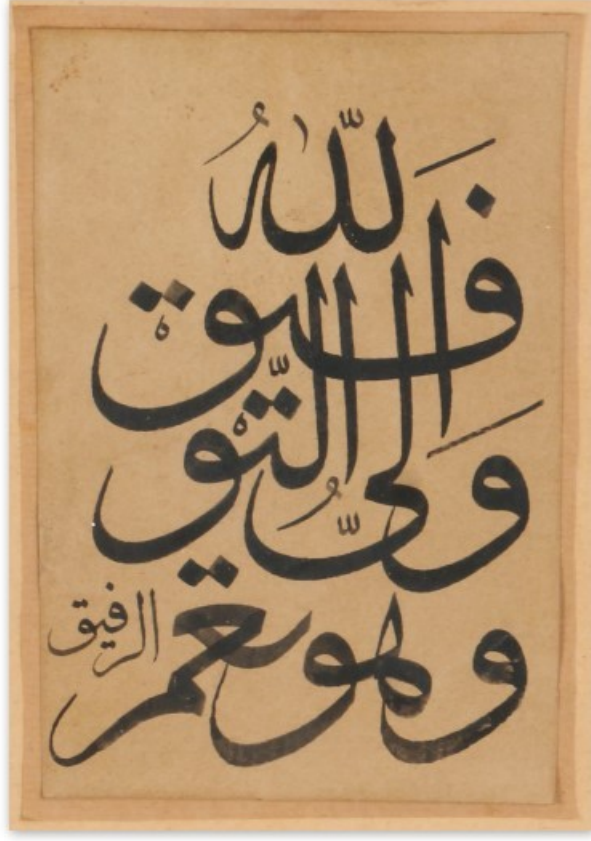 فَاللّٰهُ
وَلىُّ التّوْفيقْ
وهو نعم الرفيق